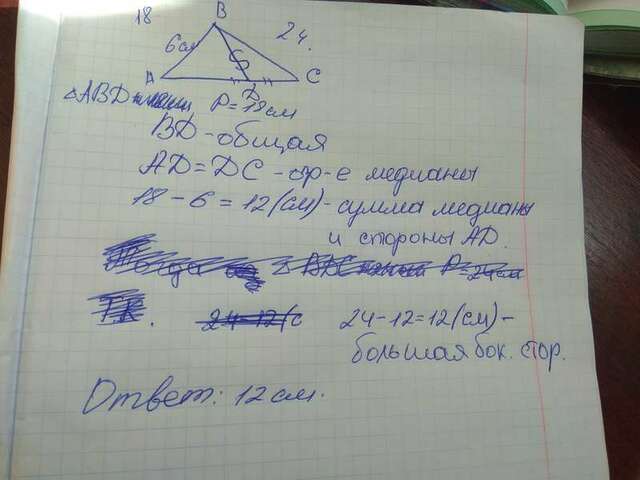 18
B
24.
6см
A
D
C
△ABD P=18см
BD - общая
AD = DC - опр-е медианы
18 - 6 = 12 (см) - сумма медианы
и стороны AD.
24-12=12(см) -
большая бок. стор.
Ответ: 12 см.